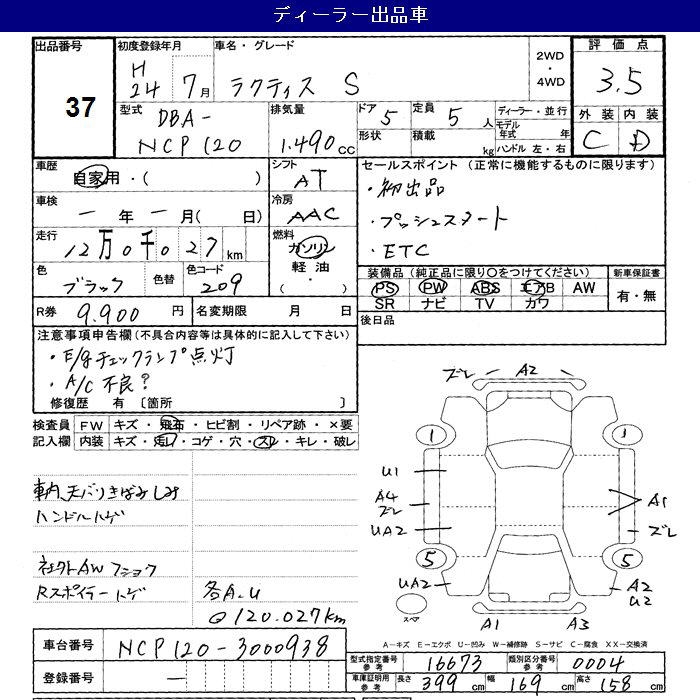 ディーラー出品車
出品番号
37
初度登録年月
H 24 年 7 月
車名・グレード
ラクティス S
2WD
・
4WD
評価点
3.5
外装 内装
C D
型式
DBA-
NCP120
排気量
1.490 cc
ドア 5
定員 5 人
形状
積載 kg
ディーラー・並行
モデル年式 年
ハンドル 左・右
車歴
自家用・( )
シフト
AT
セールスポイント (正常に機能するものに限ります)
・初出品
・プッシュスタート
・ETC
車検
一 年 一 月( 日)
冷房
AAC
走行
12万0千027km
燃料
ガソリン
軽油
・( )
色
ブラック
色替
色コード
209
装備品(純正品に限り○をつけてください)
PS PW ABS エアB AW
SR ナビ TV カワ
新車保証書
有・無
R券 9.900 円
名変期限 月 日
後日品
注意事項申告欄(不具合内容等は具体的に記入して下さい)
・E/gチェックランプ点灯
・A/C不良?
修復歴 有 〔箇所 〕
検査員 FW キズ・飛石・ヒビ割・リペア跡・×要
記入欄 内装 キズ・汚レ・コゲ・穴・スレ・キレ・破レ
車内天バリきばみしみ
ハンドルハゲ
社外AWフショク
Rスポイラーハゲ
各A.U
◎120.027km
ズレ A2
1 1
U1
A4
ズレ
UA2
A1
ズレ
5 5
UA2
A2
U2
スペア
A1 A3
A-キズ E-エクボ U-凹み W-補修跡 S-サビ C-腐食 XX-交換済
車台番号 NCP120-3000938
登録番号 一
型式指定番号 参考 16673
類別区分番号 参考 0004
車庫証明用 参考 長さ 399 cm 幅 169 cm 高さ 158 cm